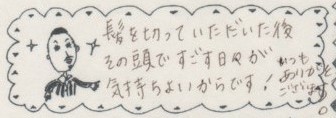 髪を切っていただいた後
その頭ですごす日々が
気持ちよいからです!
いつも
ありがとう
ございます。